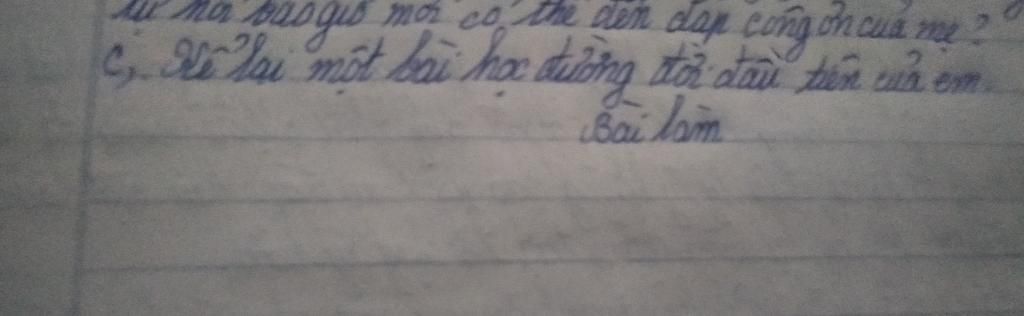 tự hỏi bao giờ mới có thể đền đáp công ơn của mẹ?
c, Kể lại một bài học đường đời đầu tiên của em.
Bài làm